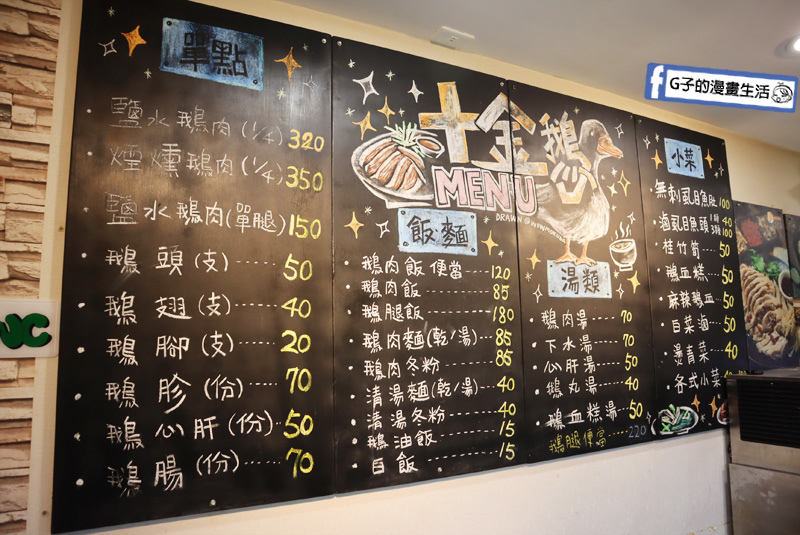 單點
鹽水鵝肉(1/4) 320
煙燻鵝肉(1/4) 350
鹽水鵝肉(單腿) 150
鵝頭(支) 50
鵝翅(支) 40
鵝腳(支) 20
鵝胗(份) 70
鵝心肝(份) 50
鵝腸(份) 70
十全鵝
MENU
DRAWN
飯麵
鵝肉飯便當 120
鵝肉飯 85
鵝腿飯 180
鵝肉麵(乾/湯) 85
鵝肉冬粉 85
清湯麵(乾/湯) 40
清湯冬粉 40
鵝油飯 15
白飯 15
湯類
鵝肉湯 70
下水湯 70
心肝湯 50
鵝丸湯 40
鵝血糕湯 50
鵝腿便當 220
小菜
無刺虱目魚肚 100
滷虱目魚頭 1個40 3個100
桂竹筍 50
鵝血糕 50
麻辣鵝血 50
白菜滷 50
燙青菜 40
各式小菜
G子的漫畫生活
WC